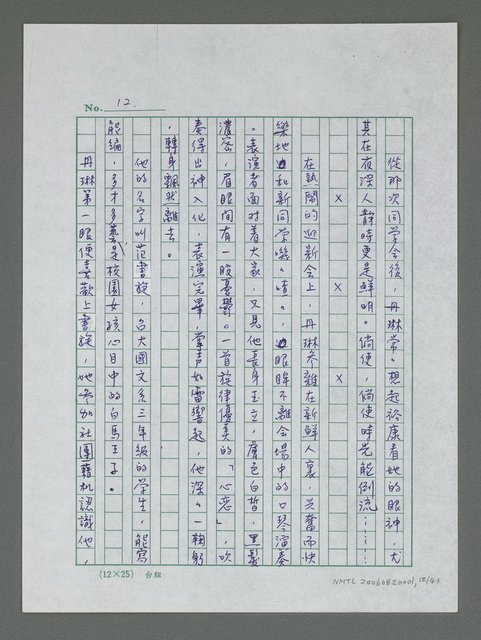 No. 12.
從那次同學會後，丹琳常〻想起裕康看她的眼神，尤
其在夜深人靜時更是鮮明。倘使，倘使時光能倒流……
× × ×
在熱鬧的迎新會上，丹琳夾雜在新鮮人裏，興奮而快
樂地和新同學嘰〻喳〻，眼眸不離會場中的口琴演奏
。表演者面對着大家，只見他長身玉立，膚色白皙，黑髮
濃密，眉眼間有一股憂鬱。一首旋律優美的「心恋」，吹
奏得出神入化，表演完畢，掌声如雷響起，他深〻一鞠躬
，轉身飄然離去。
他的名字叫范書旋，台大國文系三年級的学生，能寫
能編，多才多藝是校園女孩心目中的白馬王子。
丹琳第一眼便喜歡上書旋，她參加社團藉机認識他，
(12×25) 台組
NMTL 20060820001, 12/43